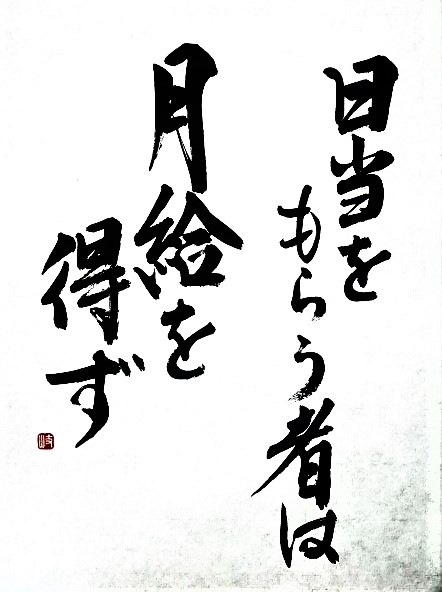 日当を
もらう者は
月給を
得ず